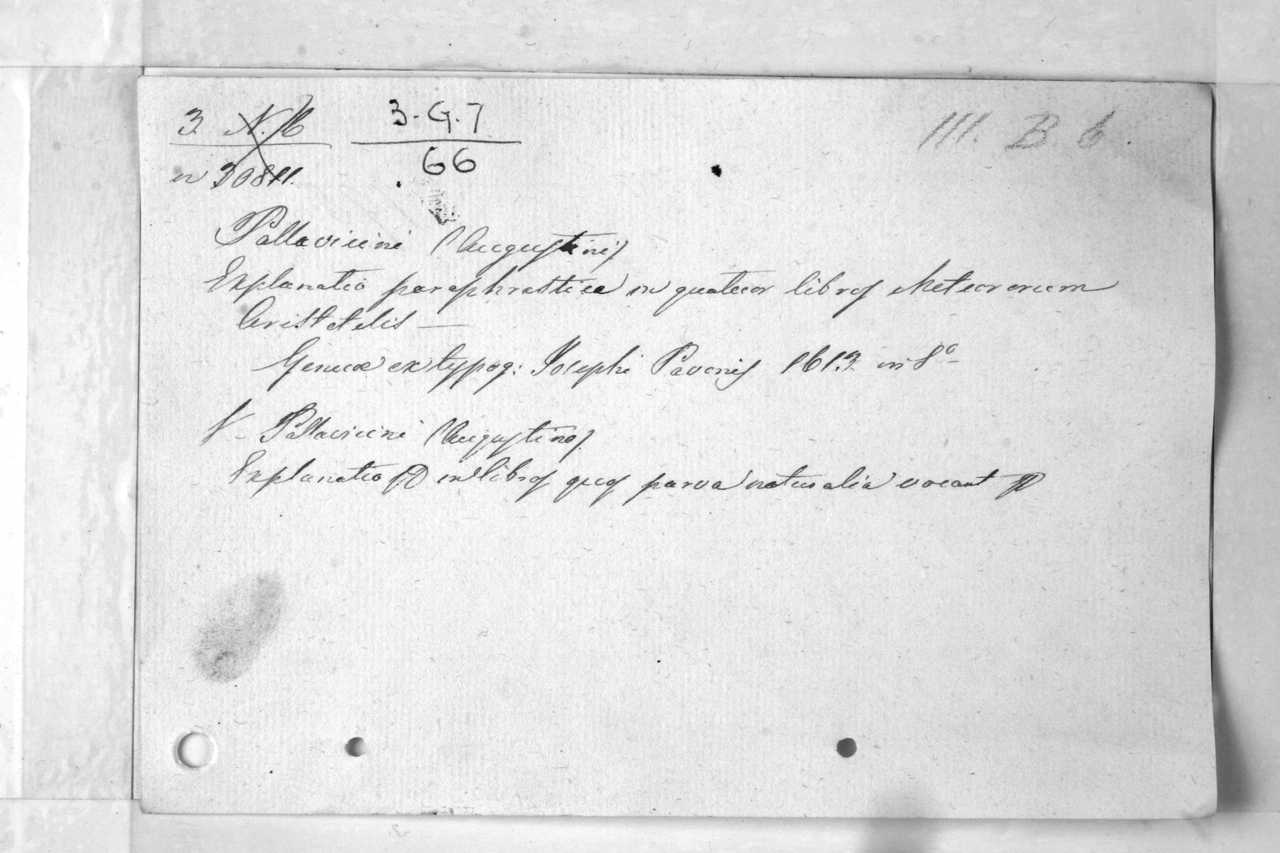 3. N. 16 3-G-7 III. B. 6
66
Pallavicini (Augustinus)
Explanatio paraphrastica in quatuor libros Meteororum
Aristotelis —
Genuæ ex typog: Josephi Pavonis 1613 in 8º
Pallavicini (Augustino)
Explanatio in libros quos parva naturalia vocant